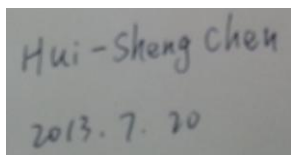 Hui-Sheng Chen
2013.7.20